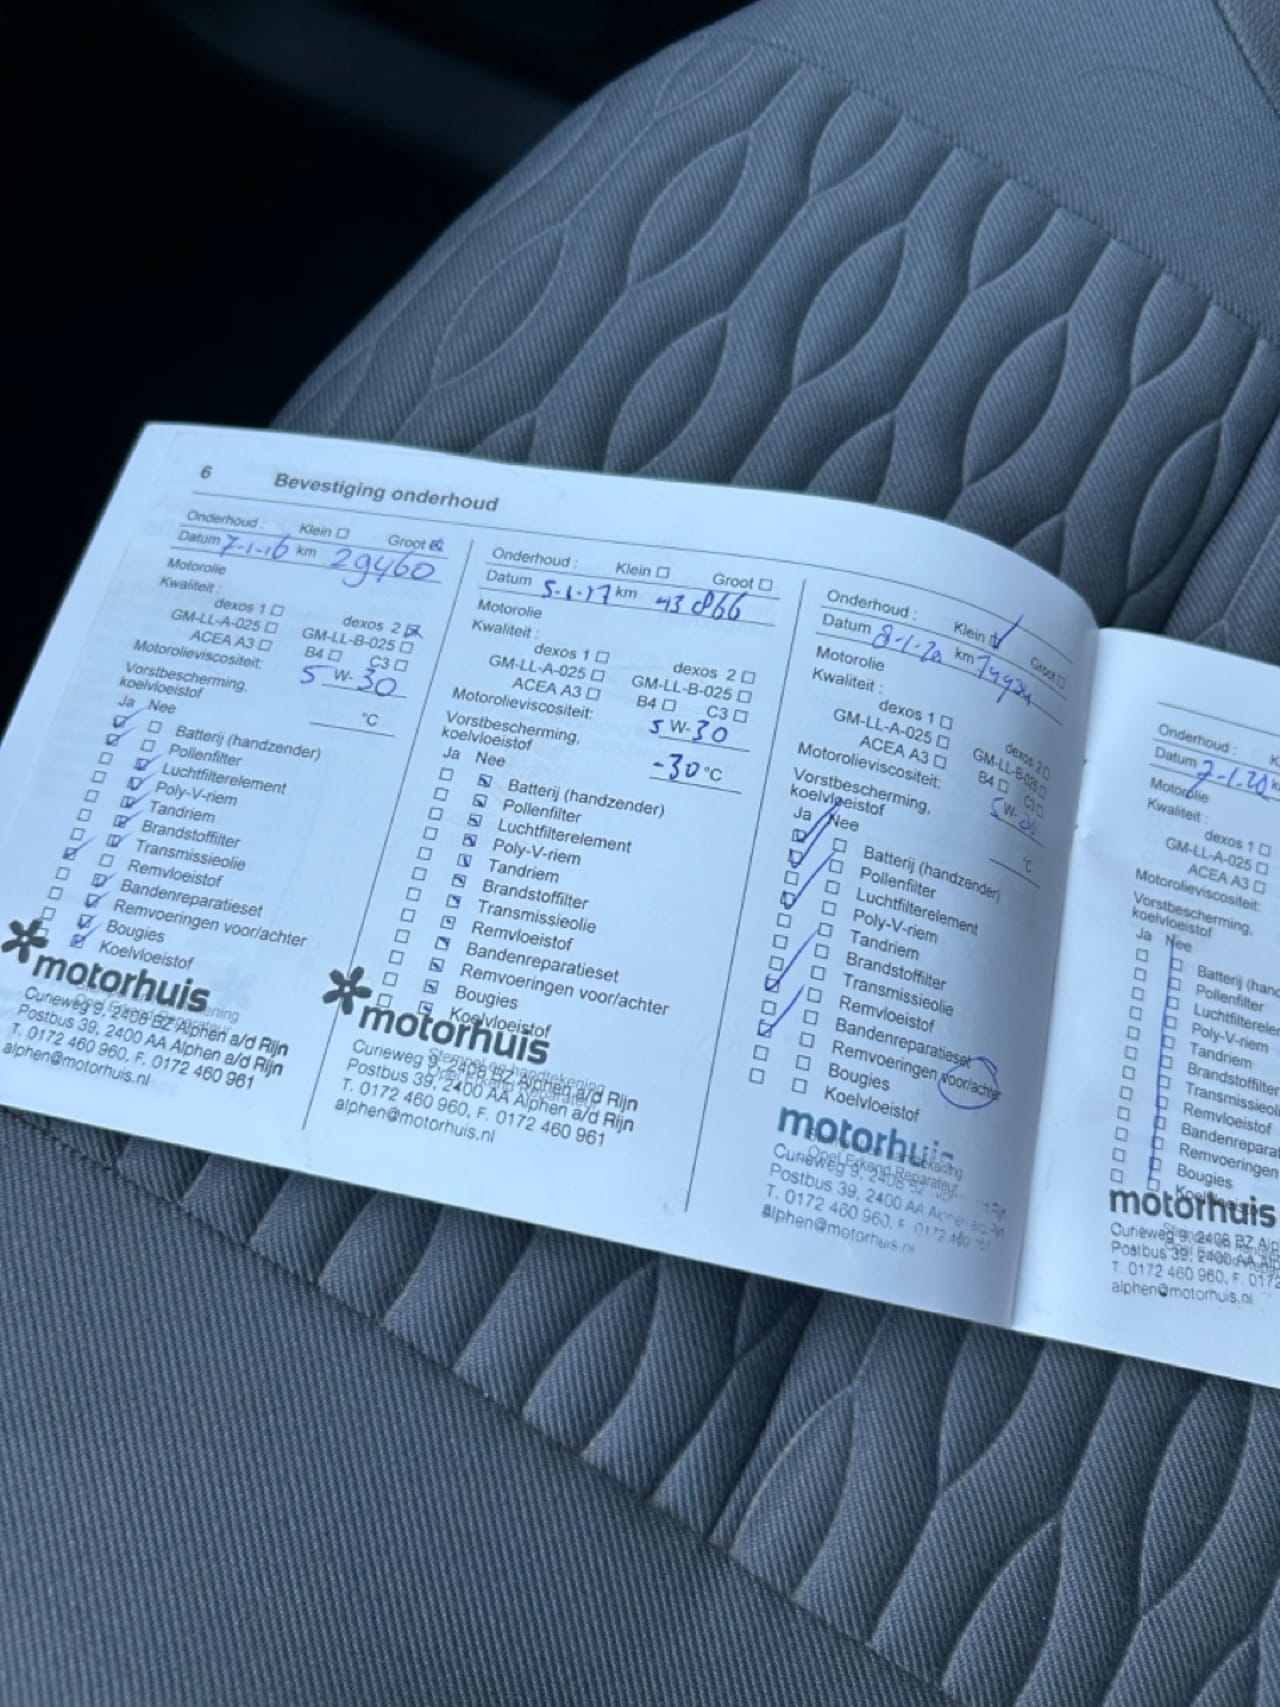 6 Bevestiging onderhoud
Onderhoud : Klein Groot
Datum 7-1-16 km 29460
Motorolie
Kwaliteit :
dexos 1 dexos 2
GM-LL-A-025 GM-LL-B-025
ACEA A3 B4 C3
Motorolieviscositeit: 5 W- 30
Vorstbescherming,
koelvloeistof °C
Ja Nee
Batterij (handzender)
Pollenfilter
Luchtfilterelement
Poly-V-riem
Tandriem
Brandstoffilter
Transmissieolie
Remvloeistof
Bandenreparatieset
Remvoeringen voor/achter
Bougies
Koelvloeistof
motorhuis
Curieweg 9, 2408 BZ Alphen a/d Rijn
Postbus 39, 2400 AA Alphen a/d Rijn
T. 0172 460 960, F. 0172 460 961
alphen@motorhuis.nl
Onderhoud : Klein Groot
Datum 5-1-17 km 43 866
Motorolie
Kwaliteit :
dexos 1 dexos 2
GM-LL-A-025 GM-LL-B-025
ACEA A3 B4 C3
Motorolieviscositeit: 5 W- 30
Vorstbescherming,
koelvloeistof -30 °C
Ja Nee
Batterij (handzender)
Pollenfilter
Luchtfilterelement
Poly-V-riem
Tandriem
Brandstoffilter
Transmissieolie
Remvloeistof
Bandenreparatieset
Remvoeringen voor/achter
Bougies
Koelvloeistof
motorhuis
Stempel en handtekening
Opel Erkend Reparateur
Curieweg 9, 2408 BZ Alphen a/d Rijn
Postbus 39, 2400 AA Alphen a/d Rijn
T. 0172 460 960, F. 0172 460 961
alphen@motorhuis.nl
Onderhoud : Klein Groot
Datum km
Motorolie
Kwaliteit :
dexos 1 dexos 2
GM-LL-A-025 GM-LL-B-025
ACEA A3 B4 C3
Motorolieviscositeit: 5 W-
Vorstbescherming,
koelvloeistof °C
Ja Nee
Batterij (handzender)
Pollenfilter
Luchtfilterelement
Poly-V-riem
Tandriem
Brandstoffilter
Transmissieolie
Remvloeistof
Bandenreparatieset
Remvoeringen voor/achter
Bougies
Koelvloeistof
motorhuis
Opel Erkend Reparateur
Curieweg 9, 2408
Postbus 39, 2400 AA
T. 0172 460 960, F. 0172 460
alphen@motorhuis.nl
Onderhoud :
Datum 7-1-20
Motorolie
Kwaliteit :
dexos 1
GM-LL-A-025
ACEA A3
Motorolieviscositeit:
Vorstbescherming,
koelvloeistof
Ja Nee
Batterij
Pollenfilter
Poly-V-riem
Tandriem
Bougies
motorhuis
Curieweg 9, 2408 BZ
Postbus 39, 2400 AA
T. 0172 460 960, F. 0172
alphen@motorhuis.nl